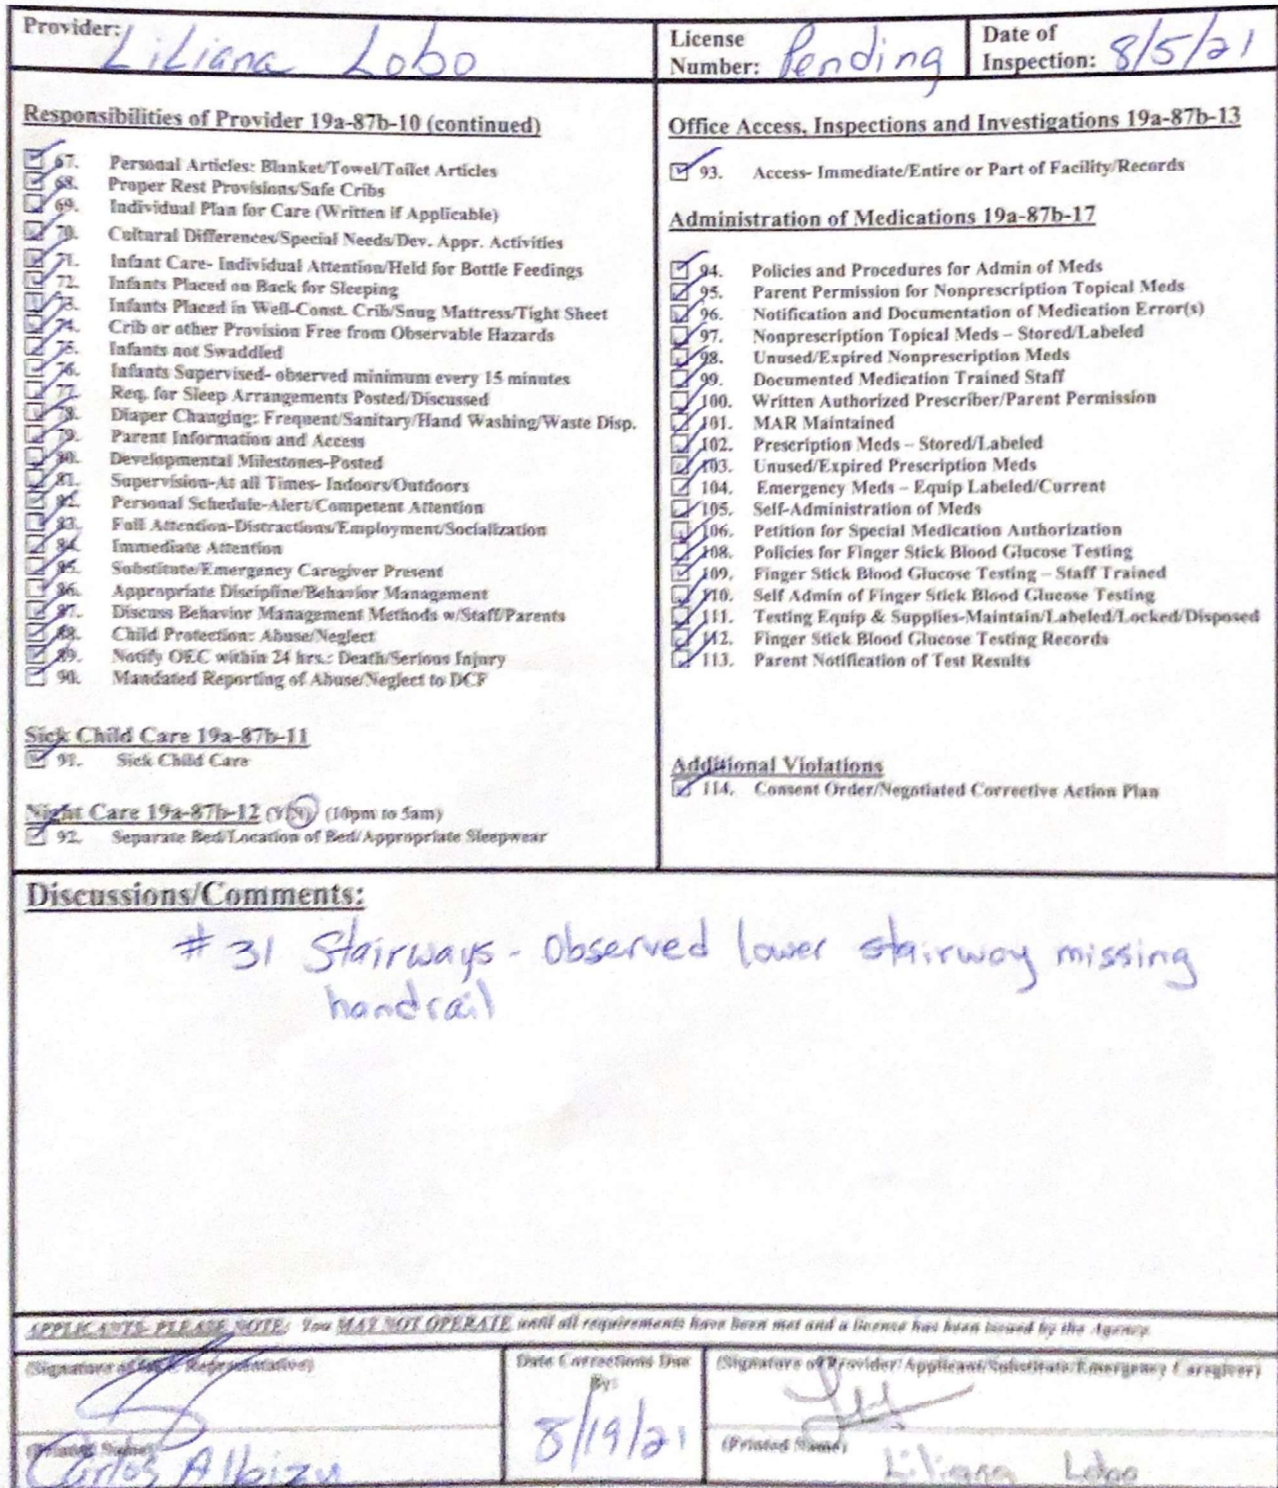 Provider: Liliana Lobo
License Number: Pending
Date of Inspection: 8/5/21
Responsibilities of Provider 19a-87b-10 (continued)
67. Personal Articles: Blanket/Towel/Toilet Articles
68. Proper Rest Provisions/Safe Cribs
69. Individual Plan for Care (Written if Applicable)
70. Cultural Differences/Special Needs/Dev. Appr. Activities
71. Infant Care- Individual Attention/Held for Bottle Feedings
72. Infants Placed on Back for Sleeping
73. Infants Placed in Well-Const. Crib/Snug Mattress/Tight Sheet
74. Crib or other Provision Free from Observable Hazards
75. Infants not Swaddled
76. Infants Supervised- observed minimum every 15 minutes
77. Req. for Sleep Arrangements Posted/Discussed
78. Diaper Changing: Frequent/Sanitary/Hand Washing/Waste Disp.
79. Parent Information and Access
80. Developmental Milestones-Posted
81. Supervision-At all Times- Indoors/Outdoors
82. Personal Schedule-Alert/Competent Attention
83. Full Attention-Distractions/Employment/Socialization
84. Immediate Attention
85. Substitute/Emergency Caregiver Present
86. Appropriate Discipline/Behavior Management
87. Discuss Behavior Management Methods w/Staff/Parents
88. Child Protection: Abuse/Neglect
89. Notify OEC within 24 hrs.: Death/Serious Injury
90. Mandated Reporting of Abuse/Neglect to DCF
Sick Child Care 19a-87b-11
91. Sick Child Care
Night Care 19a-87b-12 (Y/N) (10pm to 5am)
92. Separate Bed/Location of Bed/Appropriate Sleepwear
Office Access, Inspections and Investigations 19a-87b-13
93. Access- Immediate/Entire or Part of Facility/Records
Administration of Medications 19a-87b-17
94. Policies and Procedures for Admin of Meds
95. Parent Permission for Nonprescription Topical Meds
96. Notification and Documentation of Medication Error(s)
97. Nonprescription Topical Meds – Stored/Labeled
98. Unused/Expired Nonprescription Meds
99. Documented Medication Trained Staff
100. Written Authorized Prescriber/Parent Permission
101. MAR Maintained
102. Prescription Meds – Stored/Labeled
103. Unused/Expired Prescription Meds
104. Emergency Meds – Equip Labeled/Current
105. Self-Administration of Meds
106. Petition for Special Medication Authorization
108. Policies for Finger Stick Blood Glucose Testing
109. Finger Stick Blood Glucose Testing – Staff Trained
110. Self Admin of Finger Stick Blood Glucose Testing
111. Testing Equip & Supplies-Maintain/Labeled/Locked/Disposed
112. Finger Stick Blood Glucose Testing Records
113. Parent Notification of Test Results
Additional Violations
114. Consent Order/Negotiated Corrective Action Plan
Discussions/Comments:
# 31 Stairways - Observed lower stairway missing
handrail
APPLICANTS- PLEASE NOTE: You MAY NOT OPERATE until all requirements have been met and a license has been issued by the Agency.
(Signature of Representative)
Date Corrections Due
By:
8/19/21
(Signature of Provider/Applicant/Substitute/Emergency Caregiver)
(Printed Name)
Carlos Albizu
(Printed Name)
Liliana Lobo